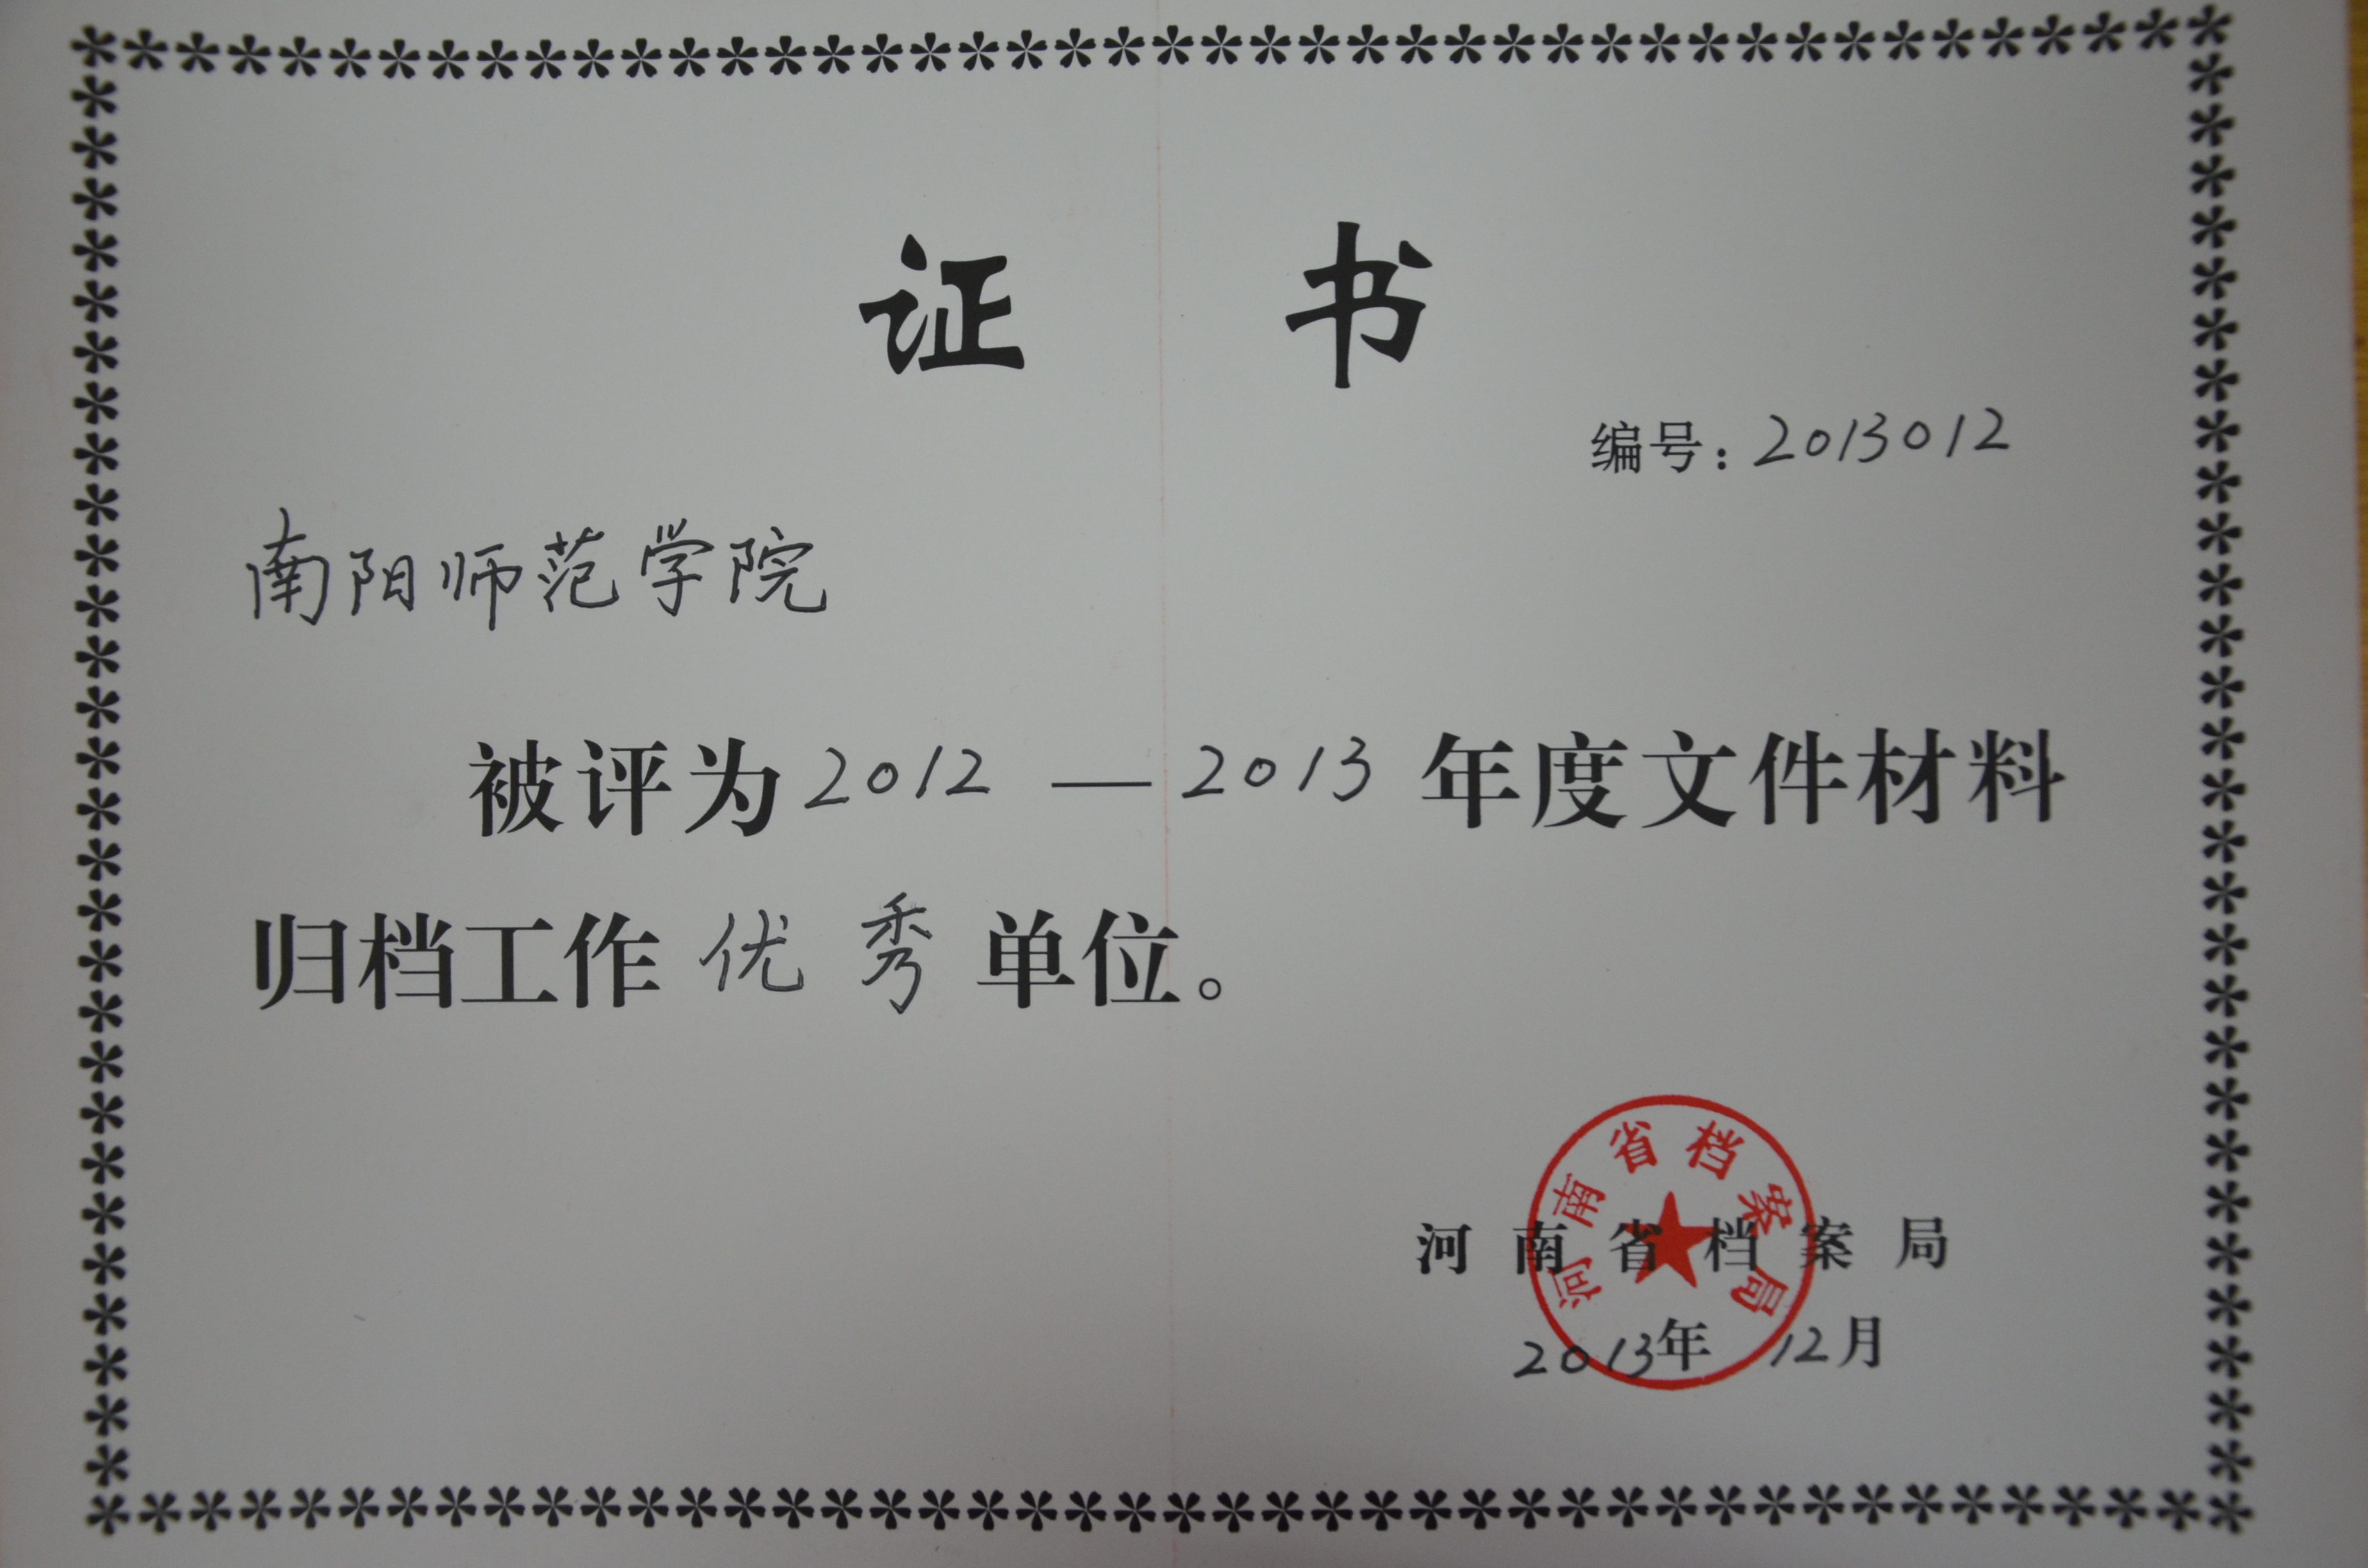 证书
编号：2013012
南阳师范学院
被评为2012—2013年度文件材料
归档工作优秀单位。
河南省档案局
河南省档案局
2013年12月